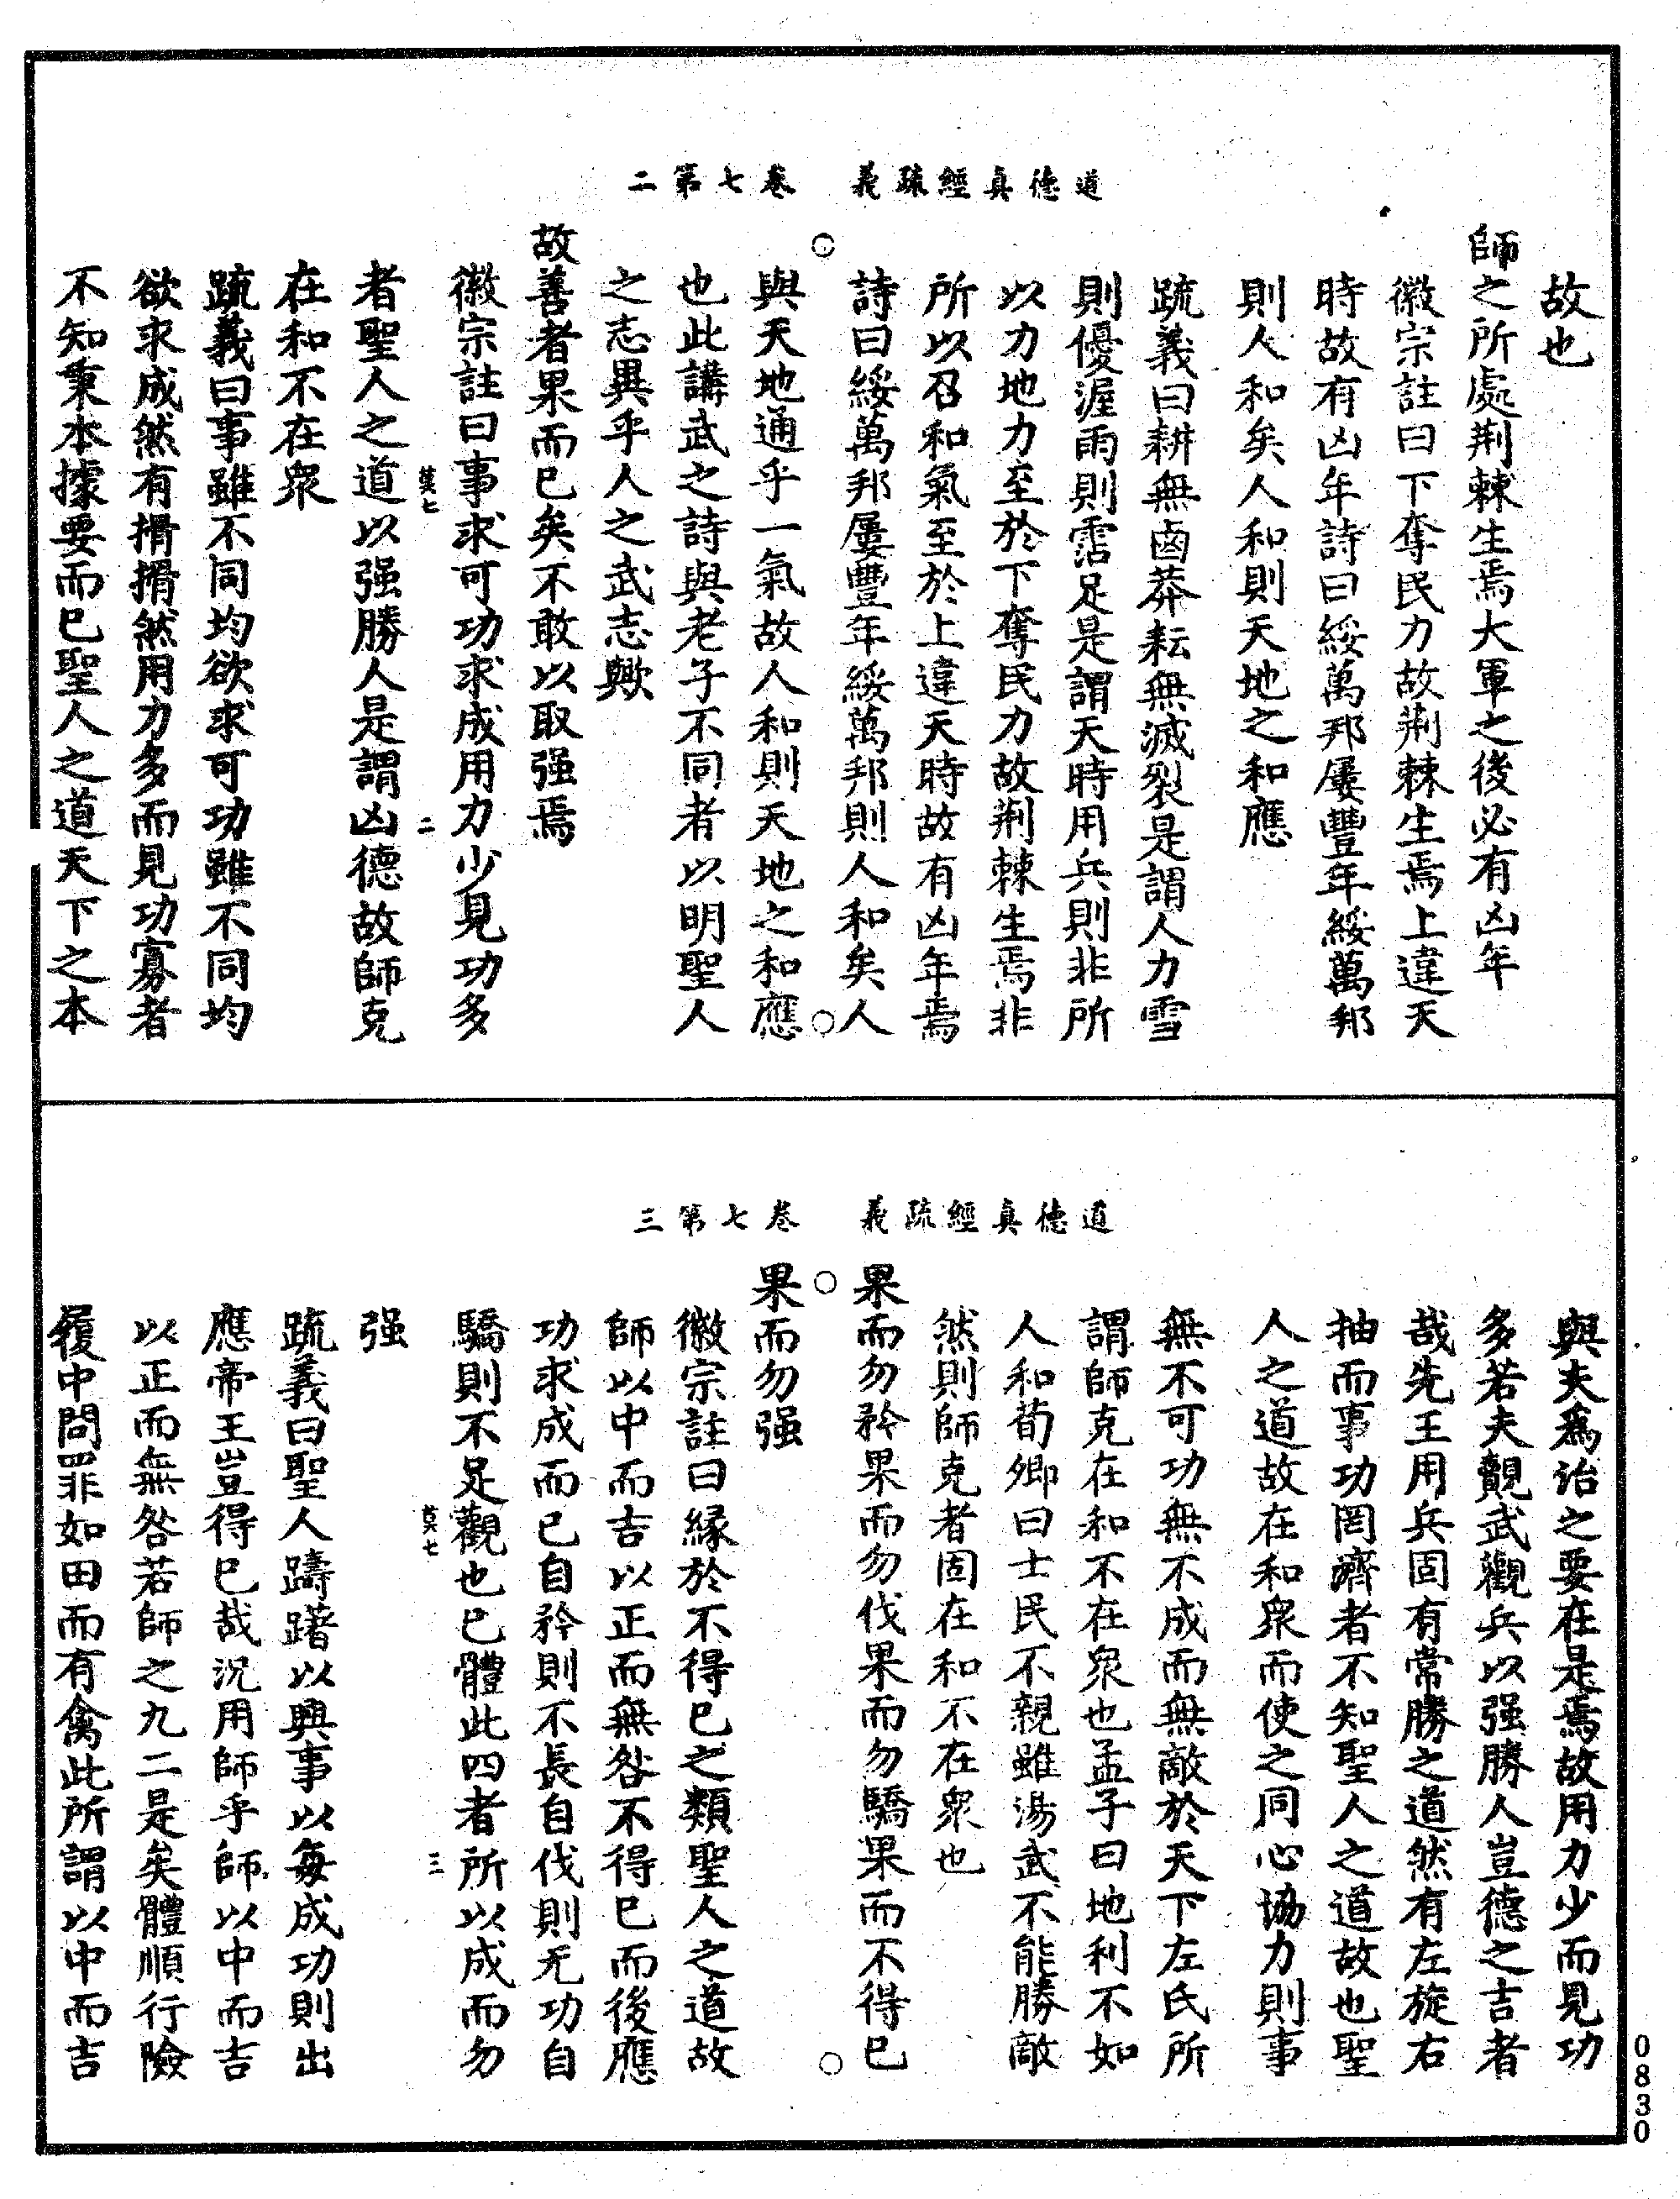 道德真經疏義　卷七第二
故也
師之所處荆棘生焉大軍之後必有凶年
徽宗註曰下奪民力故荆棘生焉上違天
時故有凶年詩曰綏萬邦屢豐年綏萬邦
則人和矣人和則天地之和應
疏義曰耕無鹵莽耘無滅裂是謂人力雪
則優渥雨則霑足是謂天時用兵則非所
以力地力至於下奪民力故荆棘生焉非
所以召和氣至於上違天時故有凶年焉
詩曰綏萬邦屢豐年綏萬邦則人和矣人
與天地通乎一氣故人和則天地之和應
也此講武之詩與老子不同者以明聖人
之志異乎人之武志歟
故善者果而已矣不敢以取强焉
徽宗註曰事求可功求成用力少見功多
莫七　二
者聖人之道以强勝人是謂凶德故師克
在和不在衆
疏義曰事雖不同均欲求可功雖不同均
欲求成然有搰搰然用力多而見功寡者
不知秉本據要而已聖人之道天下之本
道德真經疏義　卷七第三
與夫爲治之要在是焉故用力少而見功
多若夫覿武觀兵以强勝人豈德之吉者
哉先王用兵固有常勝之道然有左旋右
抽而事功罔濟者不知聖人之道故也聖
人之道故在和衆而使之同心協力則事
無不可功無不成而無敵於天下左氏所
謂師克在和不在衆也孟子曰地利不如
人和荀卿曰士民不親雖湯武不能勝敵
然則師克者固在和不在衆也
果而勿矜果而勿伐果而勿驕果而不得已
果而勿强
徽宗註曰緣於不得已之類聖人之道故
師以中而吉以正而無咎不得已而後應
功求成而已自矜則不長自伐則无功自
驕則不足觀也已體此四者所以成而勿
莫七　三
强
疏義曰聖人躊躇以興事以每成功則出
應帝王豈得已哉況用師乎師以中而吉
以正而無咎若師之九二是矣體順行險
履中問罪如田而有禽此所謂以中而吉
0830